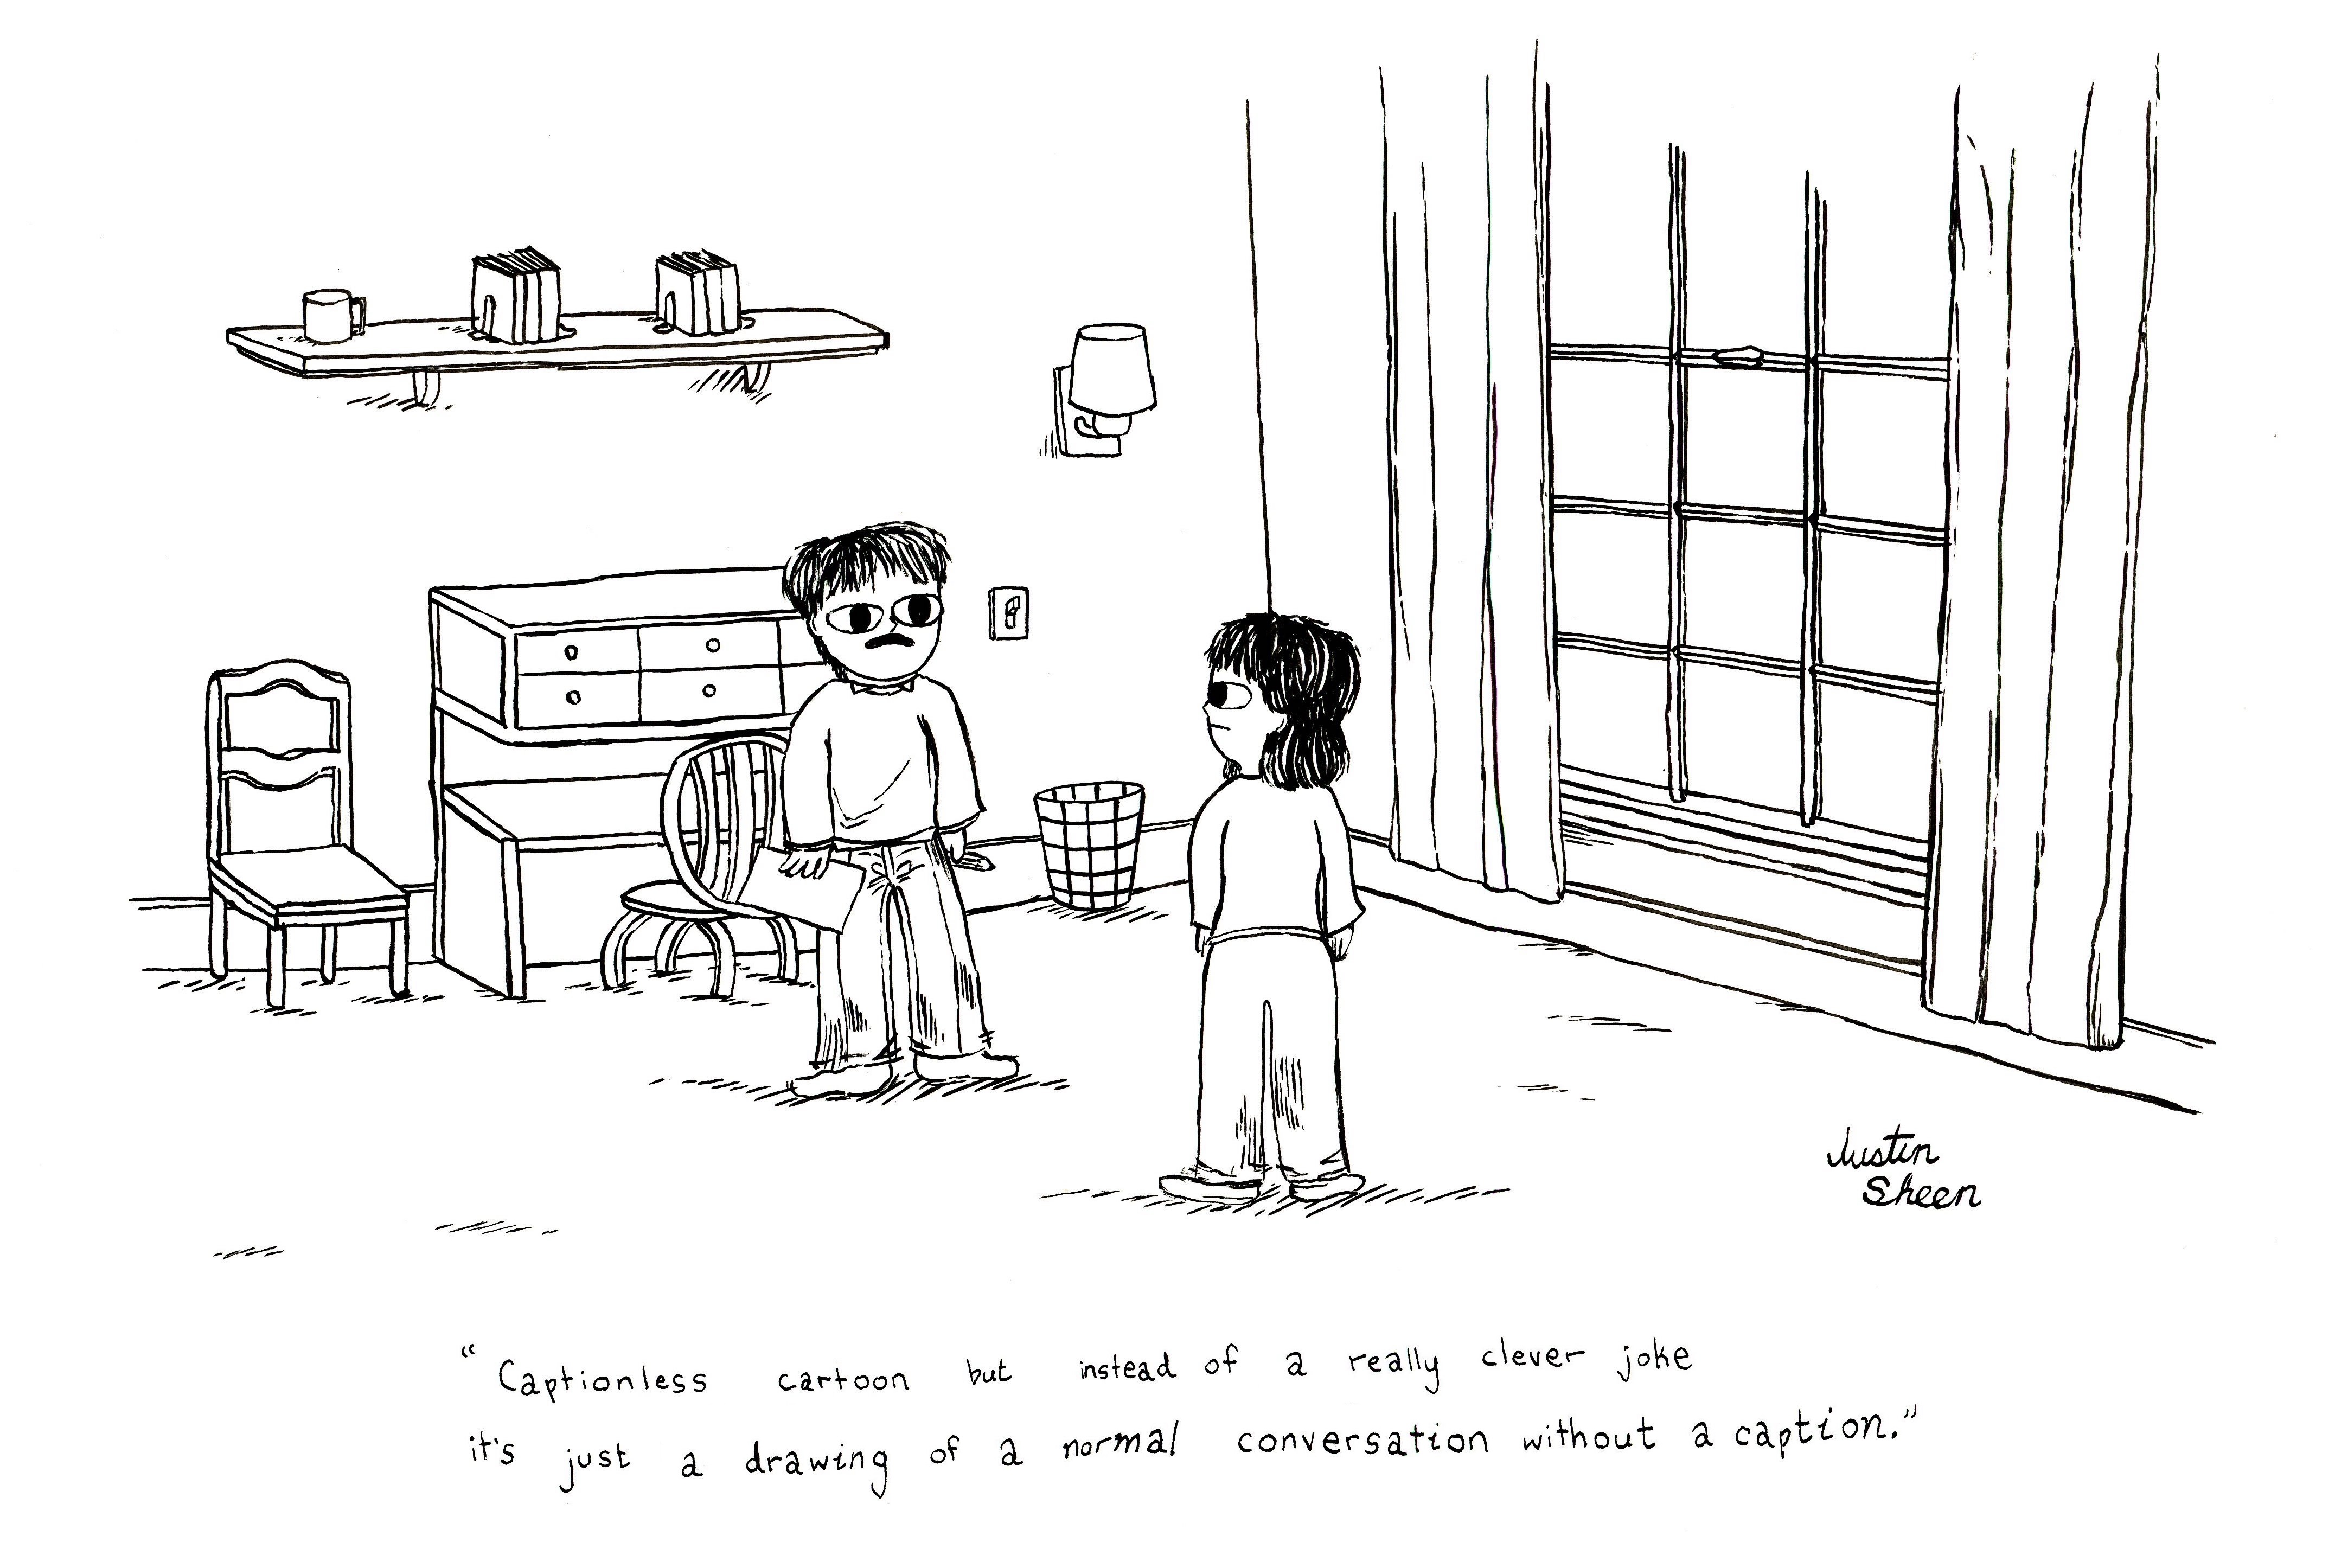 Justin
Sheen
"Captionless cartoon but instead of a really clever joke
it's just a drawing of a normal conversation without a caption."